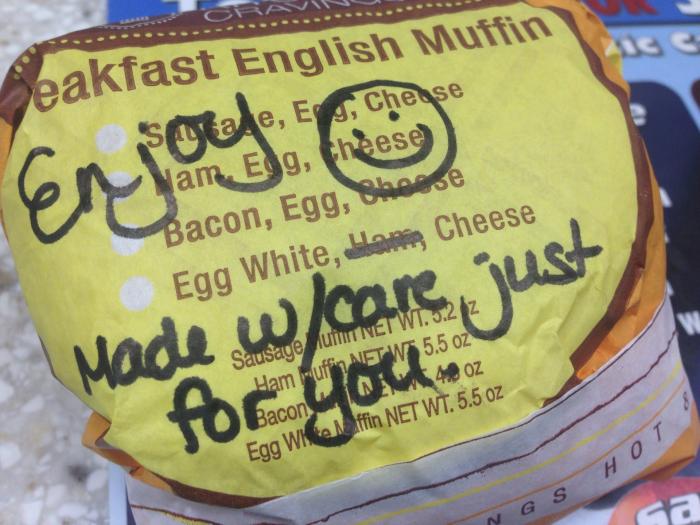 CRAVINGS
eakfast English Muffin
Sausage, Egg, Cheese
Ham, Egg, Cheese
Bacon, Egg, Cheese
Egg White, Ham, Cheese
Enjoy
Made w/care, just
for you.
Sausage Muffin NET WT. 5.2 oz
Ham Muffin NET WT. 5.5 oz
Bacon NET WT. oz
Egg White Muffin NET WT. 5.5 oz
NGS HOT